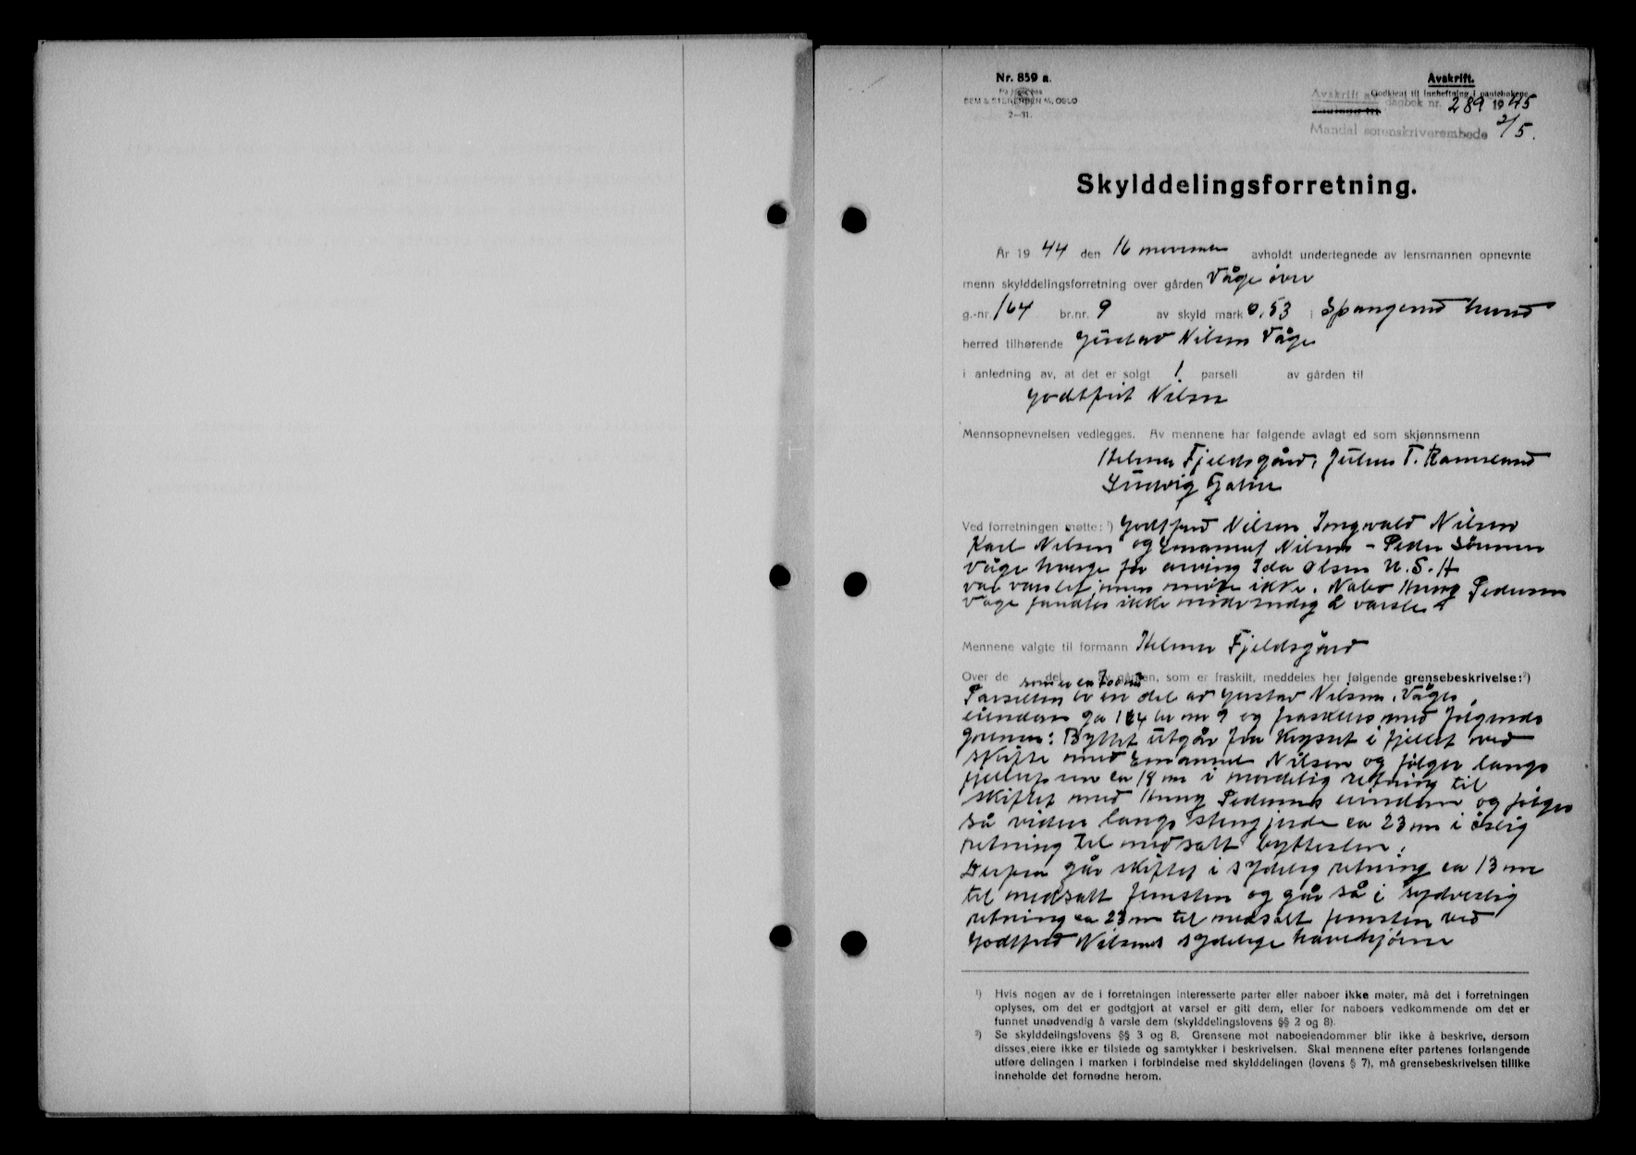 Nr. 859 a.
SEM & STENERSEN A/S, OSLO
2—31.
Avskrift.
Godkjent til innheftning i pantebokene
Avskrift av dagbok nr. 289 1945
Mandal sorenskriverembede 2/5.
Skylddelingsforretning.
År 1944 den 16 november avholdt undertegnede av lensmannen opnevnte
menn skylddelingsforretning over gården Våge øvre
g.-nr. 164 br.nr. 9 av skyld mark 0,53 i Spangereid herred
herred tilhørende Gustav Nilsen Våge
i anledning av, at det er solgt 1 parsell av gården til
Godtfred Nilsen
Mennsopnevnelsen vedlegges. Av mennene har følgende avlagt ed som skjønnsmenn
Helmer Fjeldsgård, Julius T. Ramsland
Ludvig
Ved forretningen møtte: ¹) Godtfred Nilsen Ingvald Nilsen
Karl Nilsen og Emanuel Nilsen - Peder Sørensen
Våge verge for arving Ida Olsen N.S.H
var varslet møtte ikke. Nabo Pedersen
Våge fandtes ikke nødvendig å varsle
Mennene valgte til formann Helmer Fjeldsgård
Over de del av gården, som er fraskilt, meddeles her følgende grensebeskrivelse: ²)
som er en
Parsellen er en del av Gustav Nilsen Våges
eiendom gr 164 br nr 9 og fraskilles med følgende
grenser: Byttet utgår fra krysset i fjellet ved
skifte med Emanuel Nilsen og følger langs
fjellet ca 18 m i nordelig retning til
skiftet med Pedersens eiendom og følger
så videre langs stengjerde ca 23 m i østlig
retning til nedsatt byttesten.
Derfra går skiftet i sydelig retning ca 13 m
til nedsatt stein og går så i sydvestlig
retning ca 23 m til nedsatt ved
Godtfred Nilsens sydelige havehjørne
¹) Hvis nogen av de i forretningen interesserte parter eller naboer ikke møter, må det i forretningen
oplyses, om det er godtgjort at varsel er gitt dem, eller for naboers vedkommende om det er
funnet unødvendig å varsle dem (skylddelingslovens §§ 2 og 8).
²) Se skylddelingslovens §§ 3 og 8. Grensene mot naboeiendommer blir ikke å beskrive, dersom
disses eiere ikke er tilstede og samtykker i beskrivelsen. Skal mennene efter partenes forlangende
utføre delingen i marken i forbindelse med skylddelingen (lovens § 7), må grensebeskrivelsen tillike
inneholde det fornødne herom.